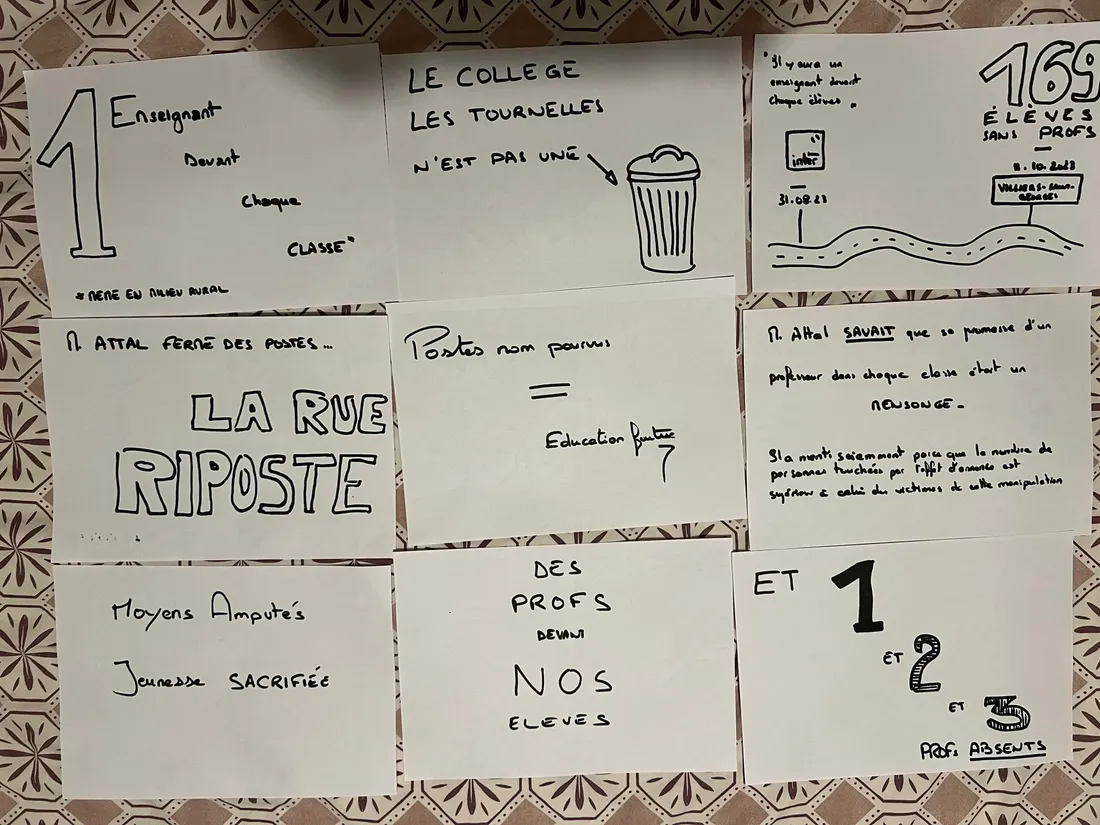 1 Enseignant
Devant
Chaque
CLASSE*
* MEME EN MILIEU RURAL
LE COLLEGE
LES TOURNELLES
N'EST PAS UNE
"Il y aura un
enseignant devant
chaque élèves".
inter
31.08.23
169
ÉLÈVES
SANS PROFS
11.10.2023
VILLIERS-SAINT-
GEORGES
M. ATTAL FERME DES POSTES...
LA RUE
RIPOSTE
Postes non pourvus
=
Education
M. Attal SAVAIT que sa promesse d'un
professeur dans chaque classe était un
MENSONGE.
Il a menti sciemment parce que le nombre de
personnes touchées par l'effet d'annonce est
supérieur à celui des victimes de cette manipulation
Moyens Amputés
Jeunesse SACRIFIÉE
DES
PROFS
DEVANT
NOS
ELEVES
ET 1
ET 2
ET 3
PROFS ABSENTS